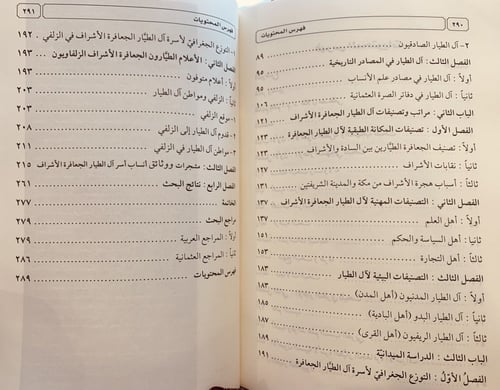 ٢٩٠ فهرس المحتويات
٢- آل الطيار الصادقيون ٨٩
الفصل الثاني: آل الطيار في المصادر التاريخية ٩٥
أولاً: آل الطيار في مصادر علم الأنساب ٩٥
ثانياً: آل الطيار في دفاتر الصرة العثمانية ١٠٦
الباب الثاني: مراتب وتصنيفات آل الطيار الجعافرة الأشراف ١٢١
الفصل الأول: تصنيفات المكانة الطبقية لآل الطيار الجعافرة ١٢٣
أولاً: تصنيف الجعافرة الطيّارين بين السادة والأشراف ١٢٣
ثانياً: نقابات الأشراف ١٢٧
ثالثاً: أسباب هجرة الأشراف من مكة والمدينة الشريفتين ١٣١
الفصل الثاني: التصنيفات المهنية لآل الطيار الجعافرة الأشراف ١٣٧
أولاً: أهل العلم ١٣٧
ثانيا: أهل السياسة والحكم ١٤١
ثالثاً: أهل التجارة ١٥٣
الفصل الثالث: التصنيفات البيئية لآل الطيار ١٨٣
أولاً: آل الطيار المدنيون (أهل المدن) ١٨٣
ثانياً: آل الطيار البدو (أهل البادية) ١٨٥
ثالثاً: آل الطيار الريفيون (أهل القرى) ١٨٧
الباب الثالث: الدراسة الميدانيّة ١٨٩
الفصلُ الأوَّلُ: التوزع الجغرافيّ لأسرة آل الطيَّار الجعافرة ١٩١
فهرس المحتويات ٢٩١
التوزع الجغرافيّ لأسرة آل الطيَّار الجعافرة الأشراف في الزلفي ١٩٢
الفصل الثاني: الأعلام الطيّارون الجعافرة الأشراف الزلفاويون ١٩٣
أولاً: أعلام متوفون ١٩٣
ثانياً: الزلفي ومواطن آل الطيار ٢٠٣
١- موقع الزلفي ٢٠٣
٢- قدوم آل الطيار إلى الزلفي ٢٠٨
٣- مواطن آل الطيار في الزلفي ٢١١
الفصل الثالث: مشجرات ووثائق أنساب أسر آل الطيار الأشراف ٢١٥
الفصل الرابع: نتائج البحث ٢٦١
الخاتمة ٢٧٧
مراجع البحث ٢٧٩
أولاً: المراجع العربية ٢٧٩
ثانياً: المراجع العثمانية ٢٨٦
فهرس المحتويات ٢٨٩